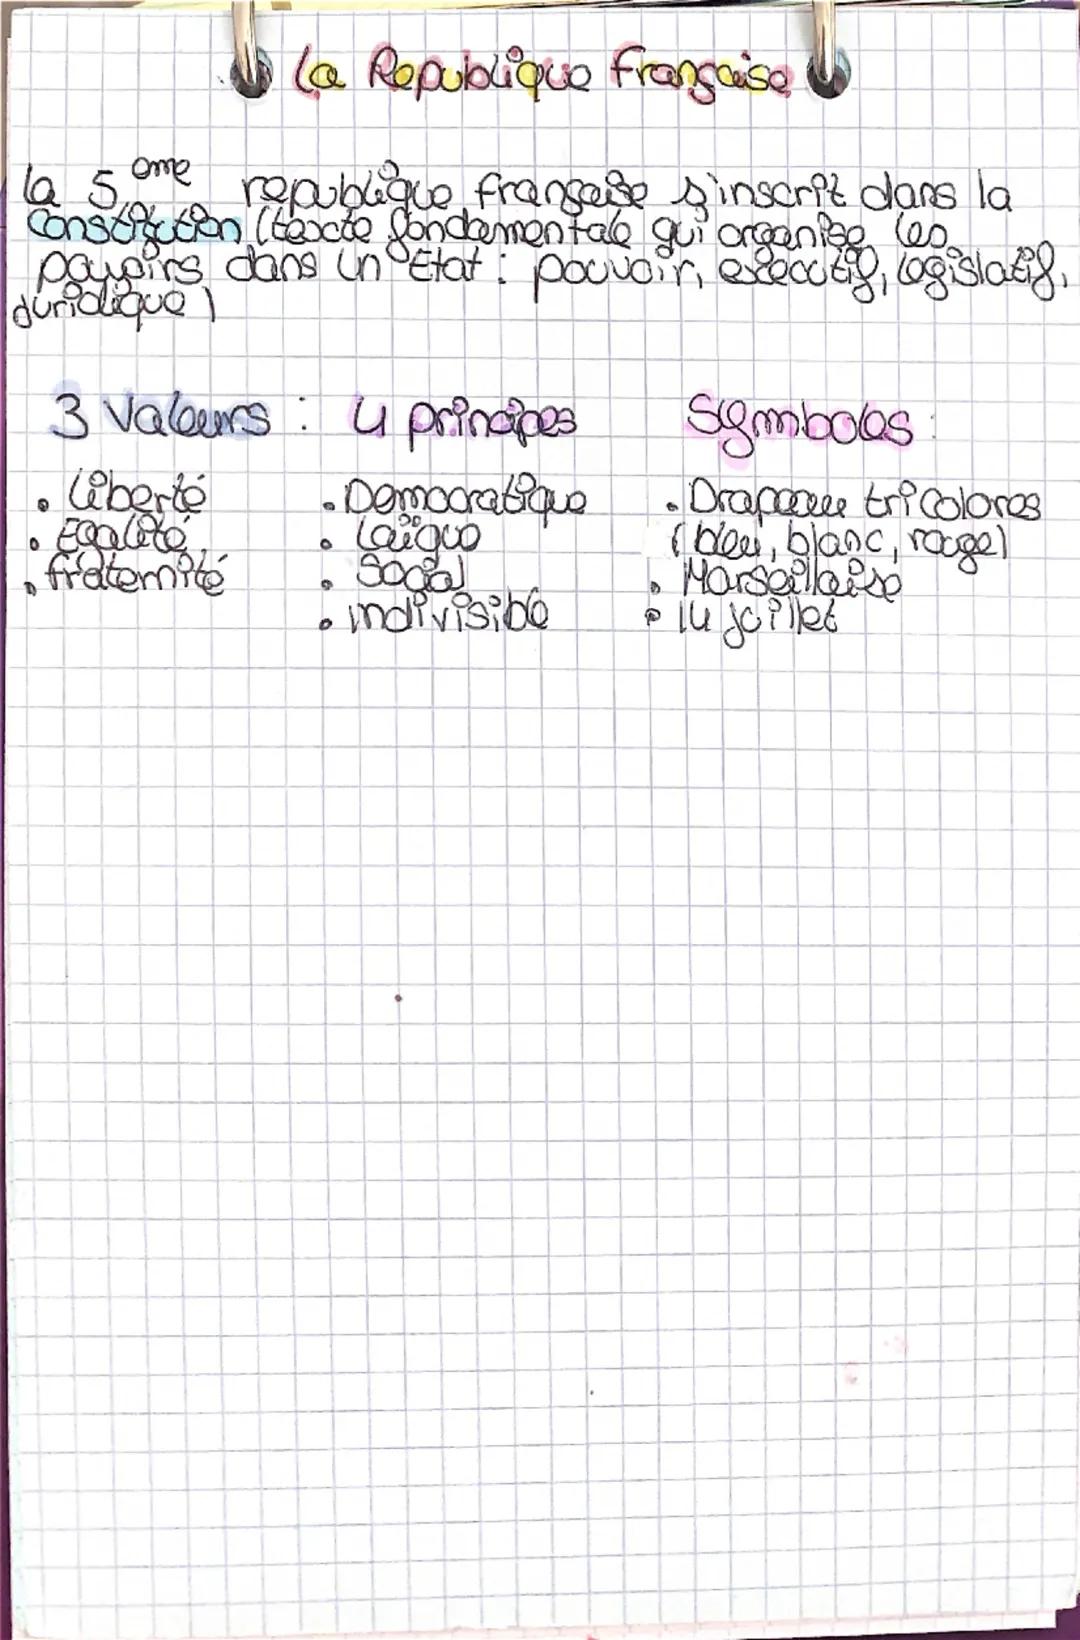 La Republique française
la 5ème republique française s'inscrit dans la
Constitution (texte fondamentale qui organise les
pouvoirs dans un Etat : pouvoir, executif, legislatif,
juridique)
3 Valeurs : 4 principes Symboles :
• Liberté • Democratique • Drapeau tricolores
• Egalité • Laïque (bleu, blanc, rouge)
• fraternité • Social • Marseillaise
• indivisible • 14 juillet